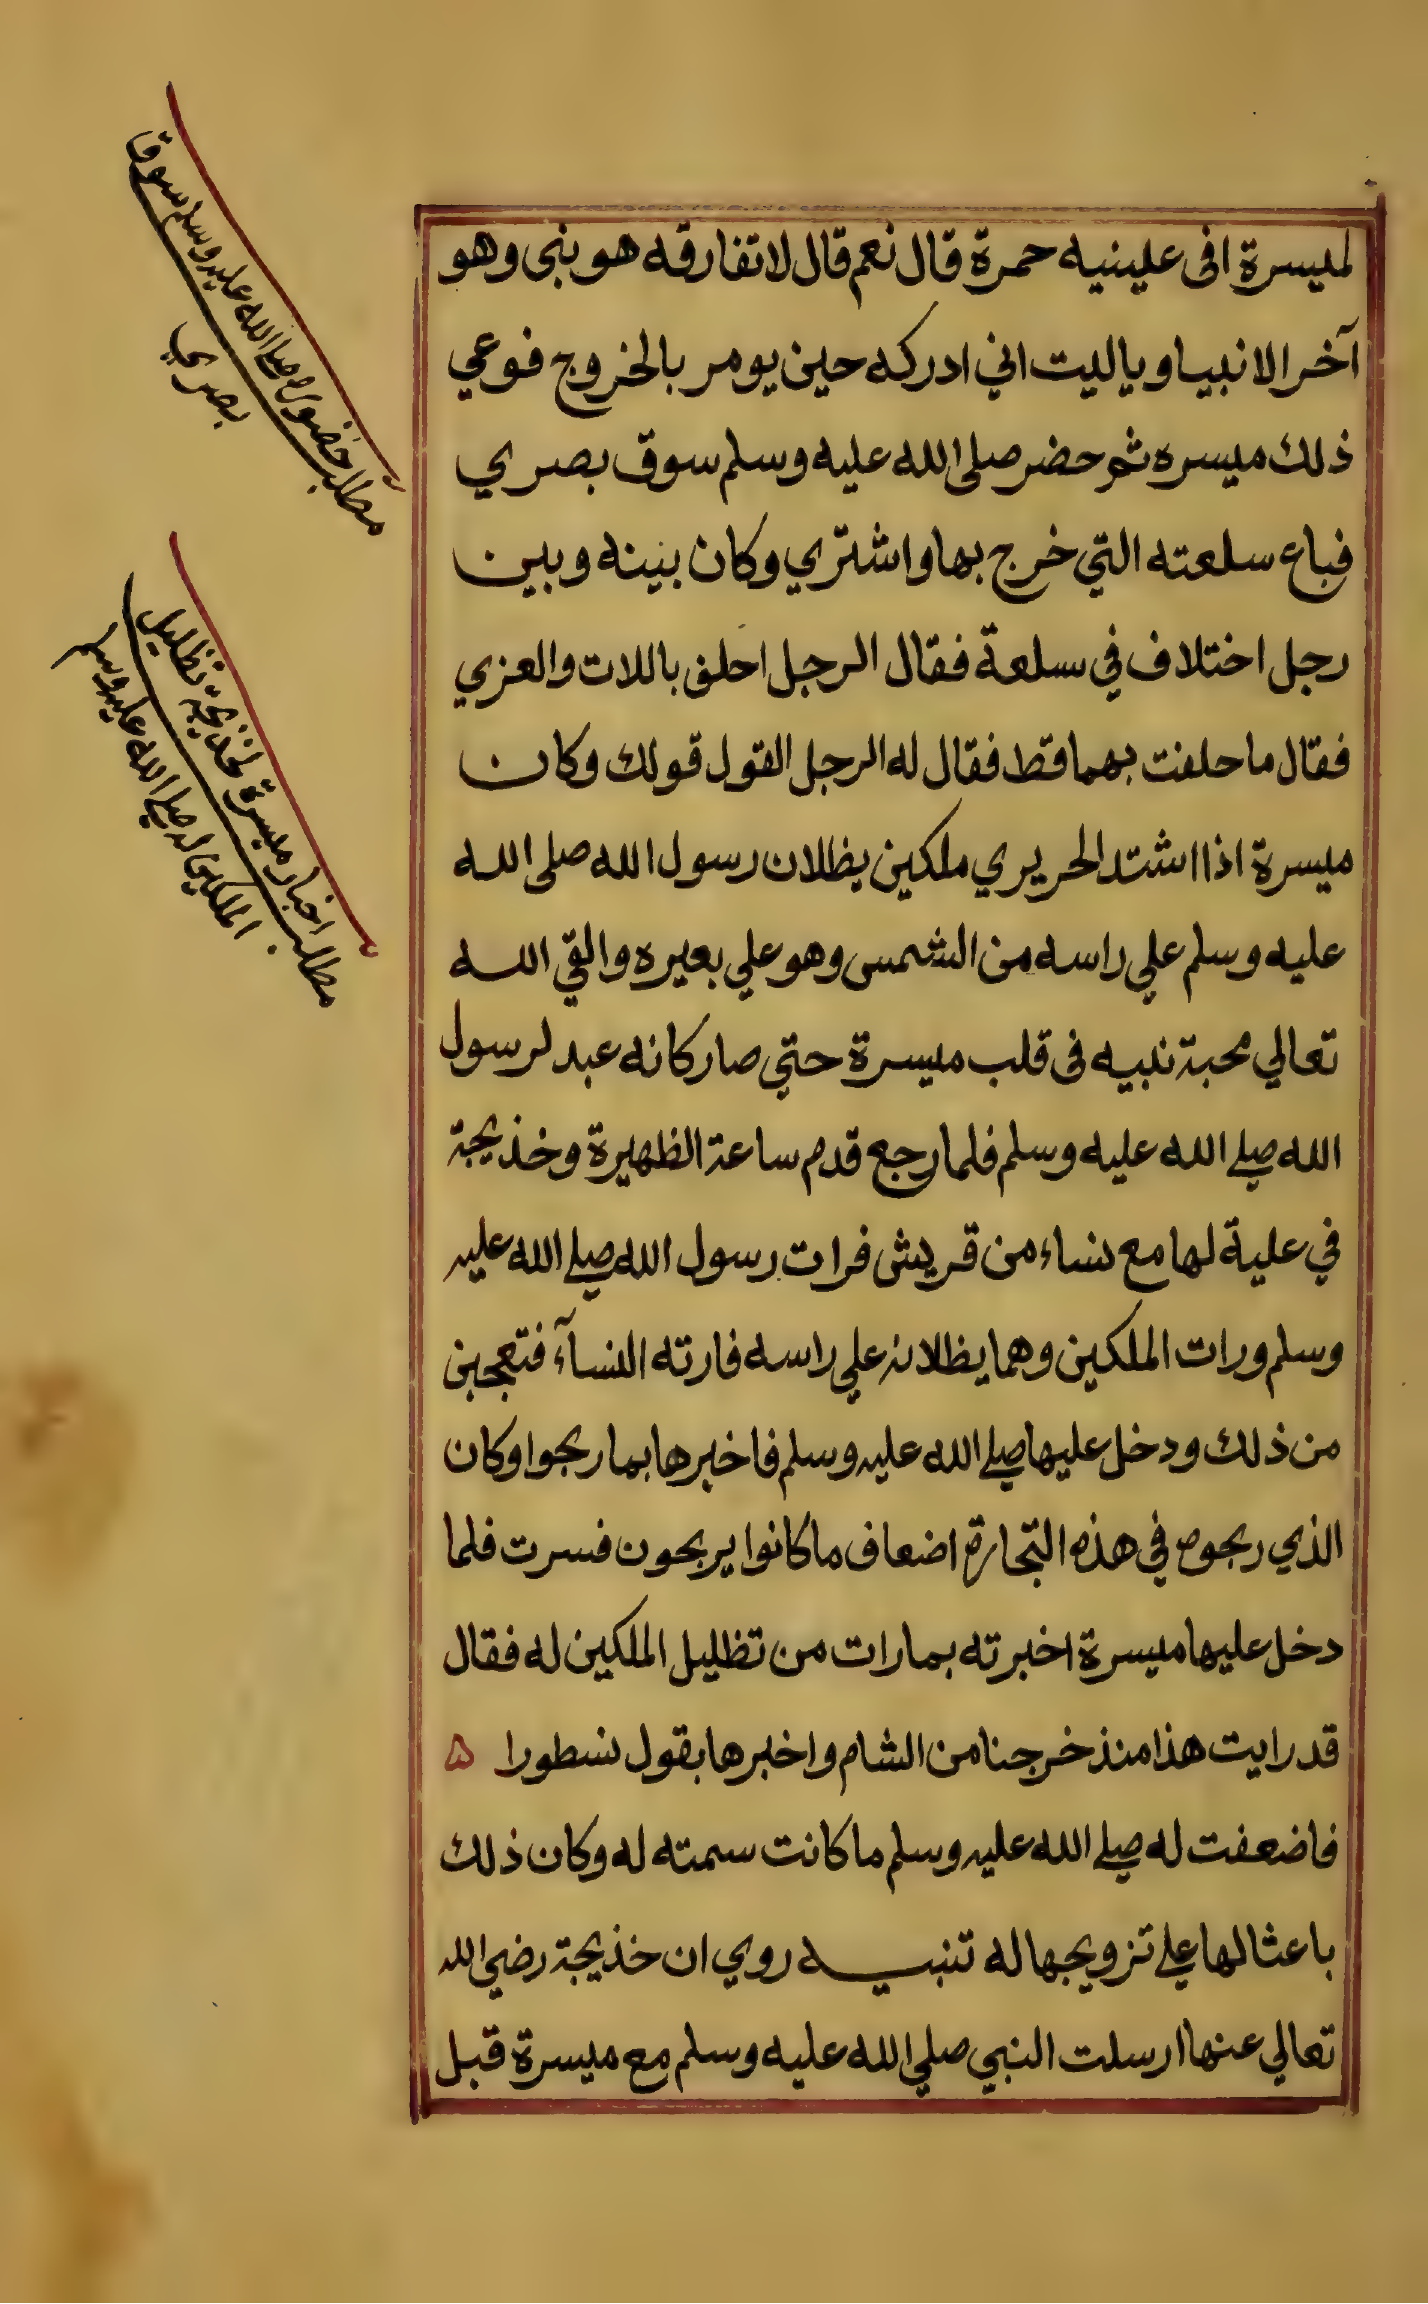 لميسرة افى علينيه حمرة قال نعم قال لا تفارقه هو بنى وهو
آخر الانبيا ويا ليت اني ادركه حين يومر بالخروج فوعي
ذلك ميسره ثم حضر صلى الله عليه وسلم سوق بصري
فباع سلعته التي خرج بها واشتري وكان بينه وبين
رجل اختلاف في سلعة فقال الرجل احلف باللات والعزي
فقال ما حلفت بهما قط فقال له الرجل القول قولك وكان
ميسرة اذا اشتد الحر يري ملكين يظلان رسول الله صلى الله
عليه وسلم علي راسه من الشمس وهو علي بعيره والقي الله
تعالي محبة نبيه فى قلب ميسرة حتي صار كانه عبد لرسول
الله صلي الله عليه وسلم فلما رجع قدم ساعة الظهيرة وخذيجة
في علية لها مع نساء من قريش فرات رسول الله صلي الله عليه
وسلم ورات الملكين وهما يظلانه علي راسه فارته النسآء فتعجبن
من ذلك ودخل عليها صلي الله عليه وسلم فاخبرها بما ربحوا وكان
الذي ربحوه في هذه التجارة اضعاف ما كانوا يربحون فسرت فلما
دخل عليها ميسرة اخبرته بما رات من تظليل الملكين له فقال
قد رايت هذا منذ خرجنا من الشام واخبرها بقول نسطورا ۵
فاضعفت له صلي الله عليه وسلم ما كانت سمته له وكان ذلك
باعثا لها علي تزويجها له تنبيه روي ان خذيجة رضي الله
تعالي عنها ارسلت النبي صلي الله عليه وسلم مع ميسرة قبل
مطلب حضوره صلي الله عليه وسلم سوق
بصري
مطلب اخبار ميسرة لخذيجة تظليل
الملكين له صلي الله عليه وسلم